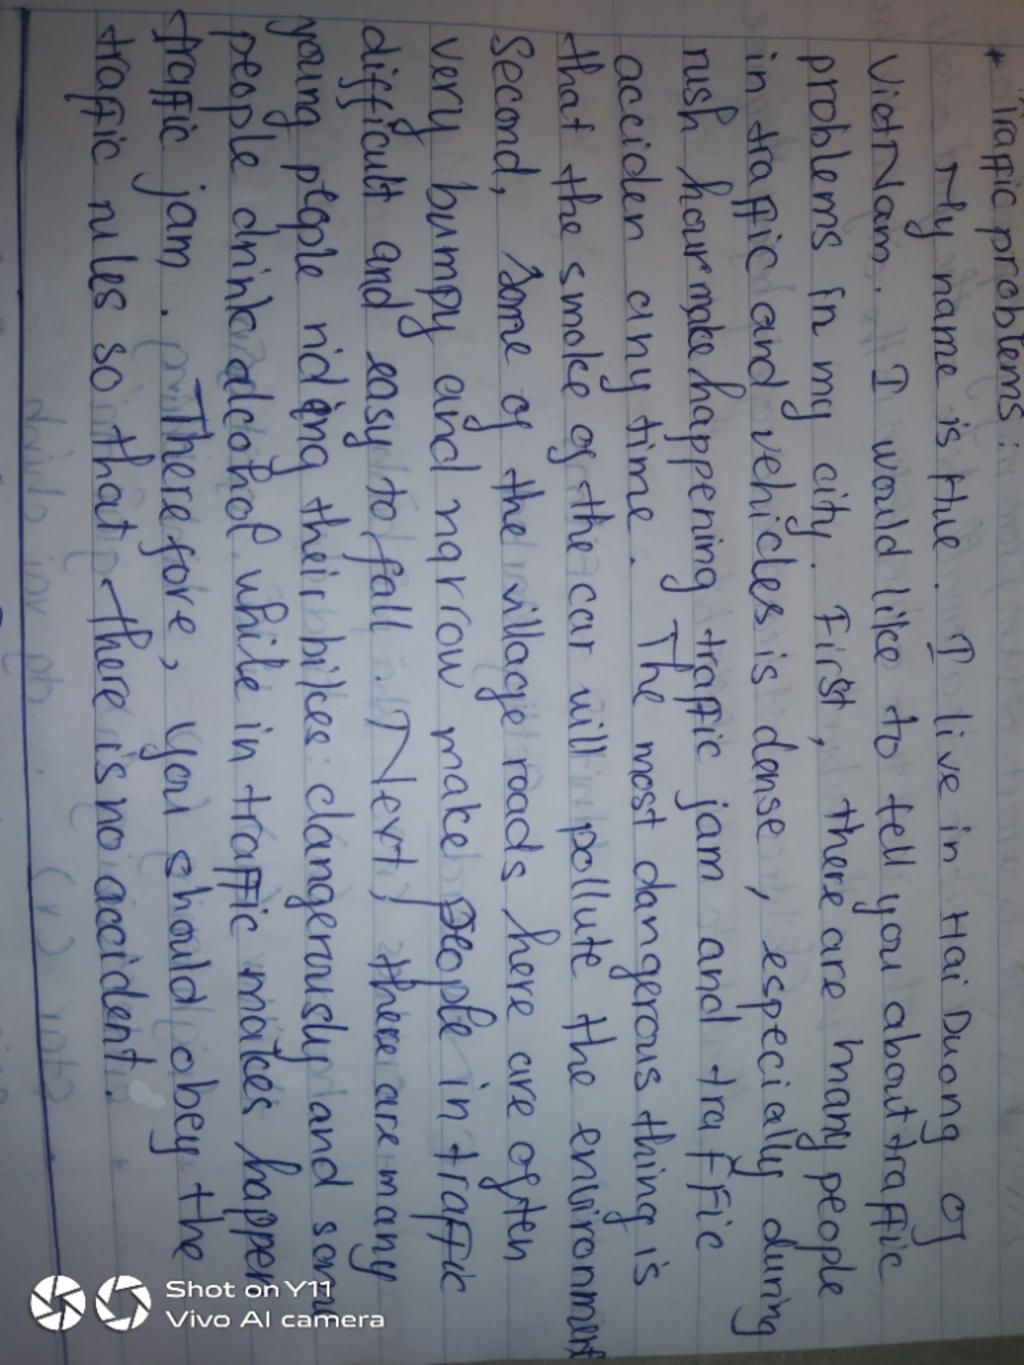 * Traffic problems:
My name is Hue. I live in Hai Duong of
VietNam. I would like to tell you about traffic
problems in my city. First, there are many people
in traffic and vehicles is dense, especially during
rush hour make happening traffic jam and traffic
acciden any time. The most dangerous thing is
that the smoke of the car will pollute the environment
Second, Some of the village roads here are often
very bumpy and narrow make people in traffic
difficult and easy to fall. Next, there are many
young people riding their bikes dangerously and some
people drink alcohol while in traffic makes happen
traffic jam. Therefore, you should obey the
traffic rules so that there is no accident.
Shot on Y11
Vivo AI camera